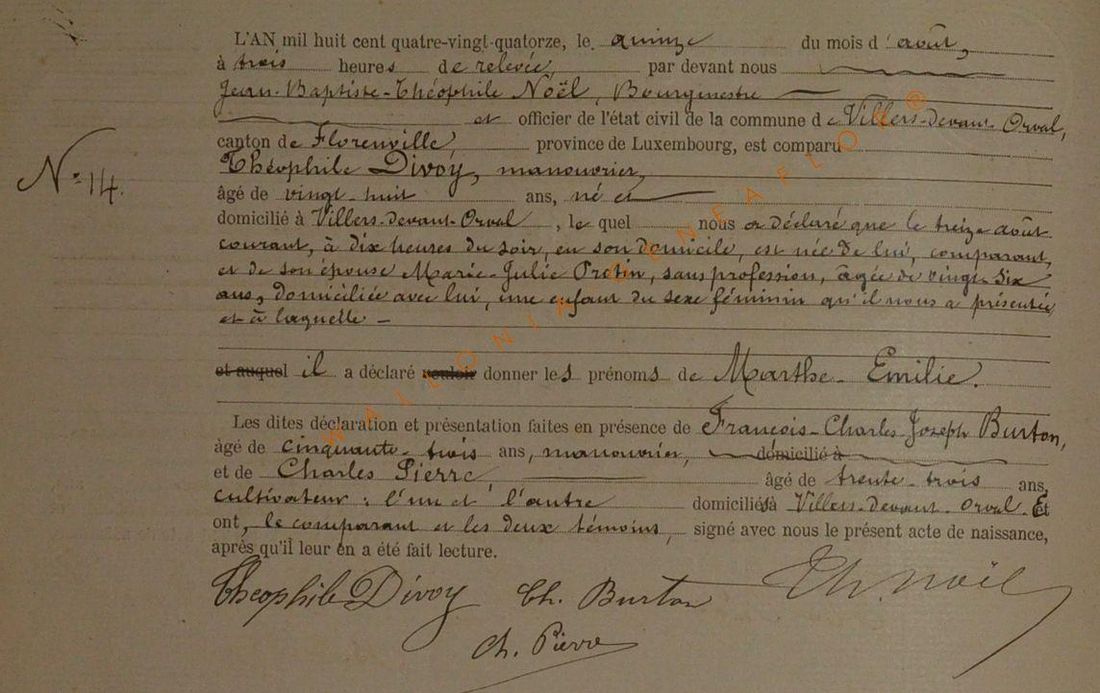 L'AN mil huit cent quatre-vingt-quatorze, le quinze du mois d'août,
à trois heures de relevée, par devant nous
Jean-Baptiste-Théophile Noël, Bourgmestre
et officier de l'état civil de la commune de Villers-devant-Orval,
canton de Florenville, province de Luxembourg, est comparu
N° 14.
Théophile Divoy, manouvrier,
âgé de vingt-huit ans, né et
domicilié à Villers-devant-Orval, le quel nous a déclaré que le treize août
courant, à dix heures du soir, en son domicile, est née de lui, comparant,
et de son épouse Marie-Julie, sans profession, âgée de vingt-six
ans, domiciliée avec lui, une enfant du sexe féminin qu'il nous a présentée
et à laquelle –
et auquel il a déclaré vouloir donner les prénoms de Marthe-Emilie.
Les dites déclaration et présentation faites en présence de François-Charles-Joseph Burton,
âgé de cinquante-trois ans, manouvrier, domicilié à
et de Charles Pierre, âgé de trente-trois ans,
cultivateur; l'un et l'autre domiciliés à Villers-devant-Orval. Et
ont, le comparant et les deux témoins, signé avec nous le présent acte de naissance,
après qu'il leur en a été fait lecture.
Théophile Divoy Ch. Burton Th. Noël
Ch. Pierre
WALLONIA GENEAFLOR ®